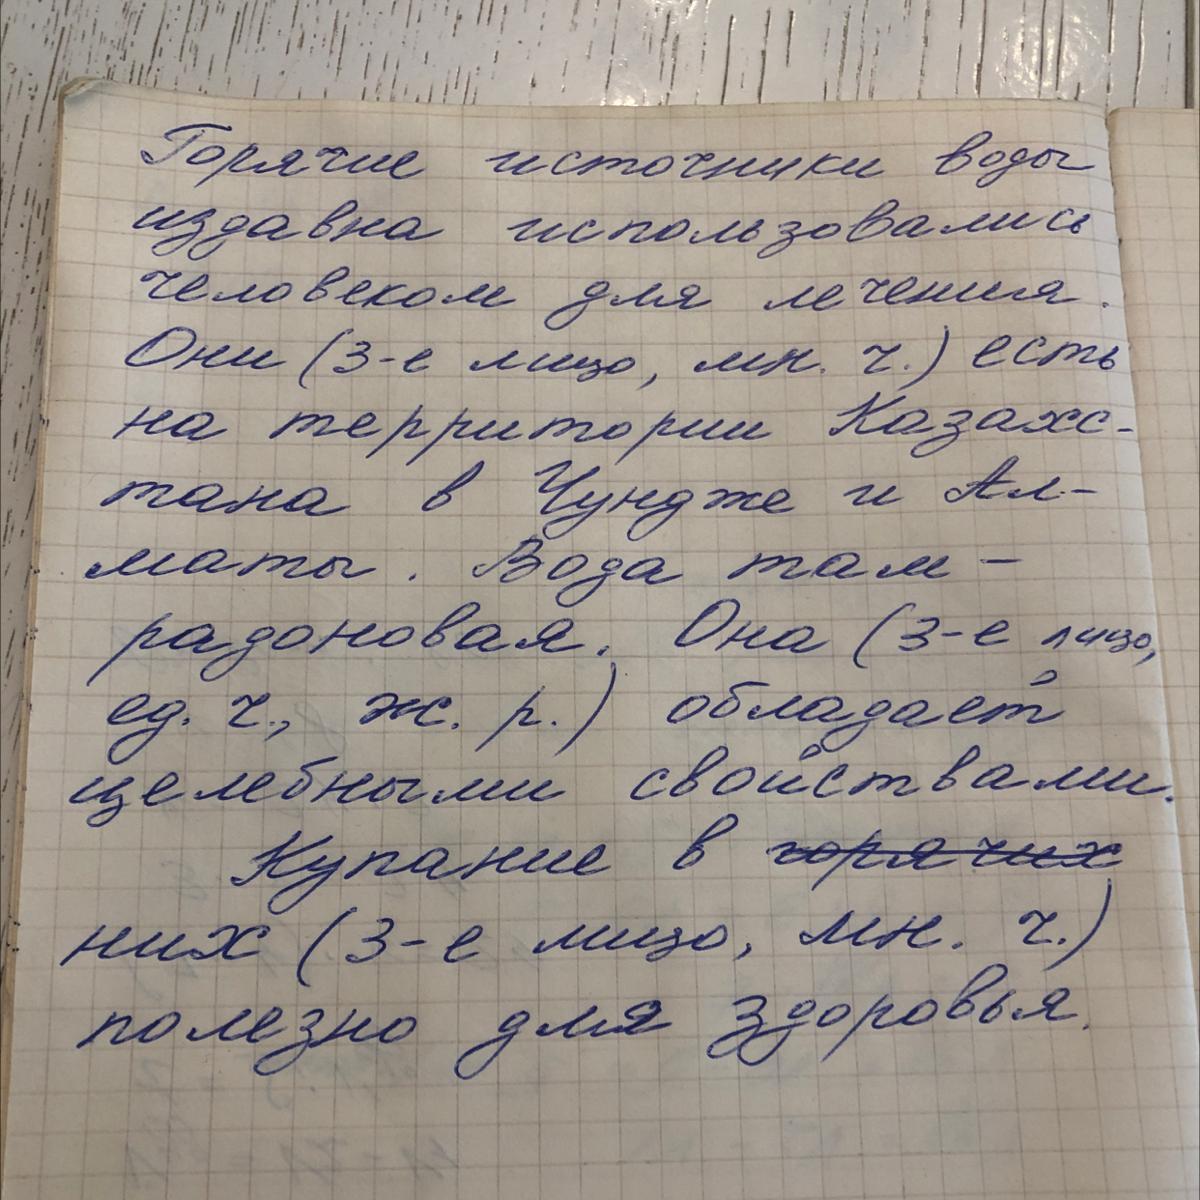 Горячие источники воды
издавна использовались
человеком для лечения.
Они (3-е лицо, мн. ч.) есть
на территории Казахс-
тана в Чундже и Ал-
маты. Вода там -
радоновая. Она (3-е лицо,
ед. ч., ж. р.) обладает
целебными свойствами.
Купание в горячих
них (3-е лицо, мн. ч.)
полезно для здоровья.